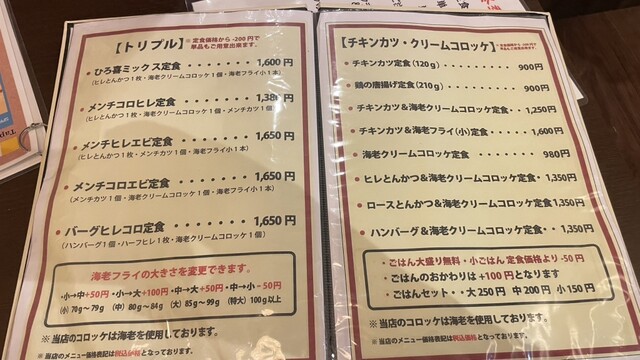 【トリプル】
※ 定食価格から -200 円で
単品もご用意出来ます。
● ひろ喜ミックス定食 ・・・・・・・ 1,600 円
（ヒレとんかつ1枚・海老クリームコロッケ1個・海老フライ小1本）
● メンチコロヒレ定食 ・・・・・・・ 1,380 円
（ヒレとんかつ1枚・海老クリームコロッケ1個・メンチカツ1個）
● メンチヒレエビ定食 ・・・・・・・ 1,650 円
（ヒレとんかつ1枚・メンチカツ1個・海老フライ小1本）
● メンチコロエビ定食 ・・・・・・・ 1,650 円
（メンチカツ1個・海老クリームコロッケ1個・海老フライ小1本）
● バーグヒレコロ定食 ・・・・・・・ 1,650 円
（ハンバーグ1個・ハーフヒレ1枚・海老クリームコロッケ1個）
海老フライの大きさを変更できます。
・小→中+50円・小→大+100円・中→大+50円・中→小 - 50円
(小) 70g〜79g (中) 80g〜84g (大) 85g〜99g (特大) 100g以上
※ 当店のコロッケは海老を使用しております。
※ 当店のメニュー価格表記は税込価格となっております。
【チキンカツ・クリームコロッケ】
● チキンカツ定食 (120g) ・・・・・・・・ 900円
● 鶏の唐揚げ定食 (210g) ・・・・・・・・ 900円
● チキンカツ＆海老クリームコロッケ定食・・ 1,250円
● チキンカツ＆海老フライ(小)定食・・・・ 1,600円
● 海老クリームコロッケ定食 ・・・・・・・ 980円
● ヒレとんかつ＆海老クリームコロッケ定食・ 1,350円
● ロースとんかつ＆海老クリームコロッケ定食 1,350円
● ハンバーグ＆海老クリームコロッケ定食・・ 1,350円
・ごはん大盛り無料・小ごはん 定食価格より -50 円
・ごはんのおかわりは +100 円となります
・ごはんセット・・大 250 円 中 200 円 小 150 円
※ 当店のコロッケは海老を使用しております。
※ 当店のメニュー価格表記は税込価格となっております。